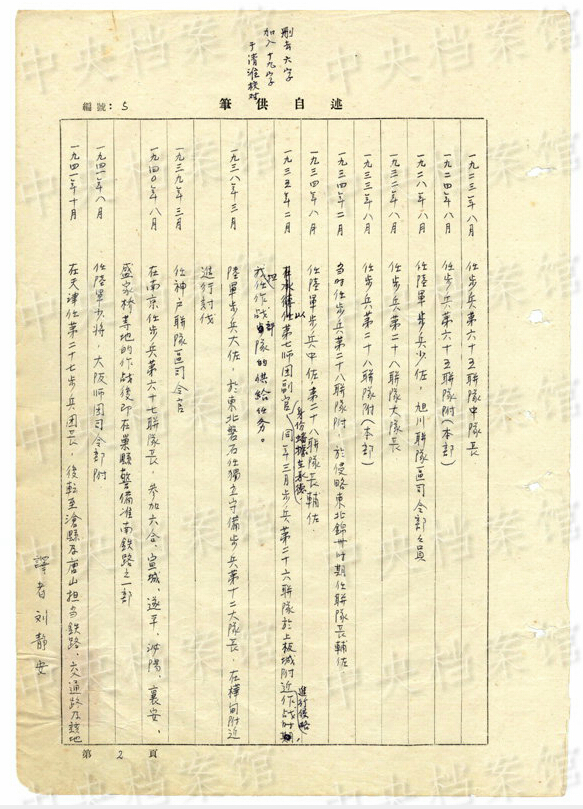 刪去六字
加入十九字
于清淮校对
編號：5
述自供筆
一九二三年八月　任步兵第六十五聯隊中隊長
一九二四年八月　任步兵第六十五聯隊附（本部）
一九二八年八月　任陸軍步兵少佐，旭川聯隊區司令部部員
一九三二年八月　任步兵第二十八聯隊大隊長
一九三三年八月　任步兵第二十八聯隊附（本部）
一九三四年二月　当时任步兵第二十八聯隊附，於侵略東北錦州时期任聯隊長輔佐
一九三四年八月　任陸軍步兵中佐，第二十八聯隊長輔佐．
一九三五年二月　以第七师团副官身份蟠據在承德，同年三月步兵第二十六聯隊於上板城附近進行侵略，作战时期
我担任作战部隊的供给任务。
一九三八年三月　陸軍步兵大佐，於東北磐石任獨立守備步兵第十二大隊長，在樺甸附近
進行討伐
一九三九年三月　任神户聯隊區司令官
一九四〇年八月　在南京任步兵第六十七聯隊長，參加六合、宣城、遂平、沙陽、襄安、
盛家桥等地的作战後即在巢縣警備淮南鉄路之一部
一九四一年八月　任陸軍少將，大阪师团司令部附
一九四一年十月　在天津任第二十七步兵团長，後転至滄縣及唐山担当鉄路、交通路及該地
譯者 刘静安
第2頁
中央档案馆